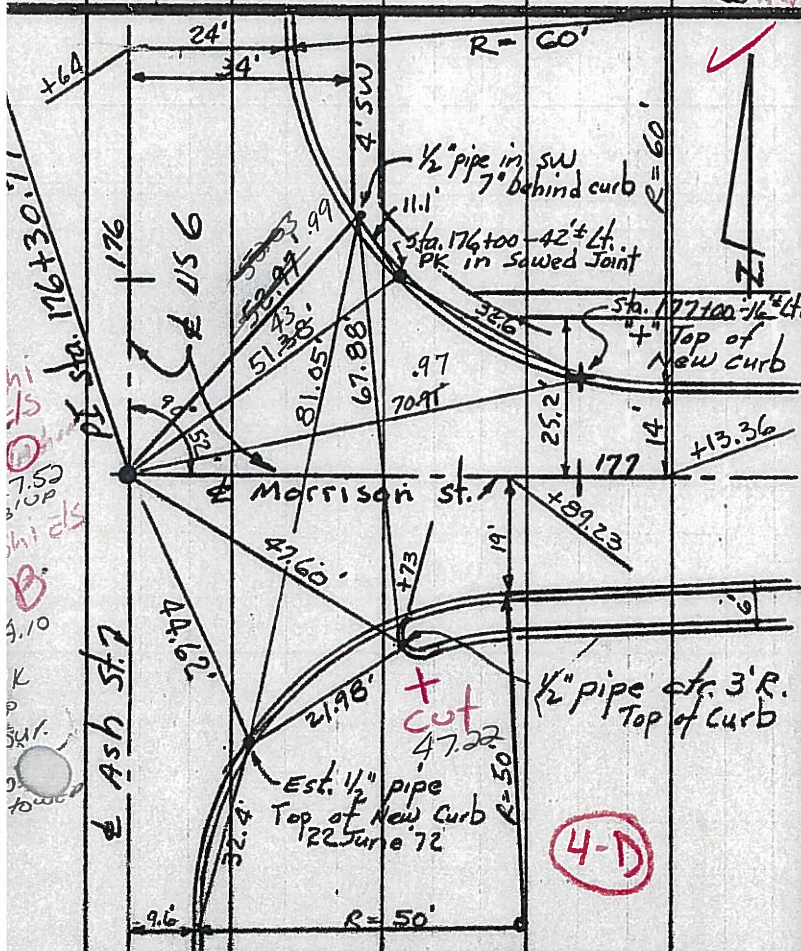 24'
R= 60'
+64
34'
4' SW
R=60'
PI Sta. 176+30.77
176
℄ US 6
1/2" pipe in SW
7" behind curb
11.1'
Sta. 176+00-42'± Lt.
PK in Sawed Joint
.99
52.97
43
51.38'
81.05'
67.88'
32.6
Sta. 177+00-16'± Lt.
"+" Top of
New Curb
.97
70.91'
25.2'
14'
N
90°
52'
+13.36
177
℄ Morrison St.
+89.23
47.60'
+73
19'
6'
44.62'
7.52
B
℄ Ash St.
21.98'
+
cut
47.22
1/2" pipe ctr. 3' R.
Top of Curb
Est. 1/2" pipe
Top of New Curb
22 June '72
32.4'
R=50'
4-D
9.6'
R= 50'